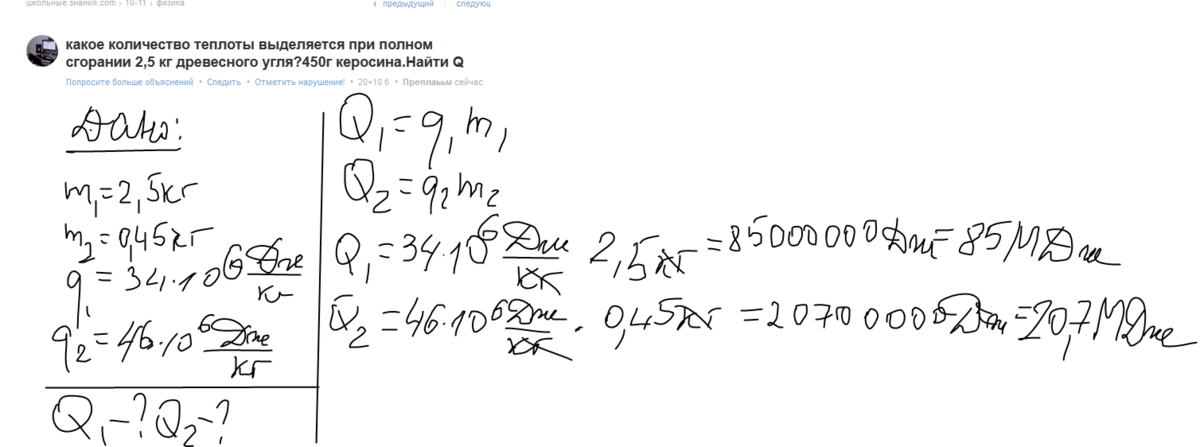 школьные знания.com › 10-11 › физика
‹ предыдущий следующ
какое количество теплоты выделяется при полном
сгорании 2,5 кг древесного угля?450г керосина.Найти Q
Попросите больше объяснений • Следить • Отметить нарушение! • 20+10 б • сейчас
Дано:
m₁=2,5кг
m₂=0,45кг
q₁=34·10⁶ Дж/кг
q₂=46·10⁶ Дж/кг
Q₁-? Q₂-?
Q₁=q₁m₁
Q₂=q₂m₂
Q₁=34·10⁶ Дж/кг · 2,5кг =85000000Дж=85МДж
Q₂=46·10⁶ Дж/кг · 0,45кг =20700000Дж=20,7МДж